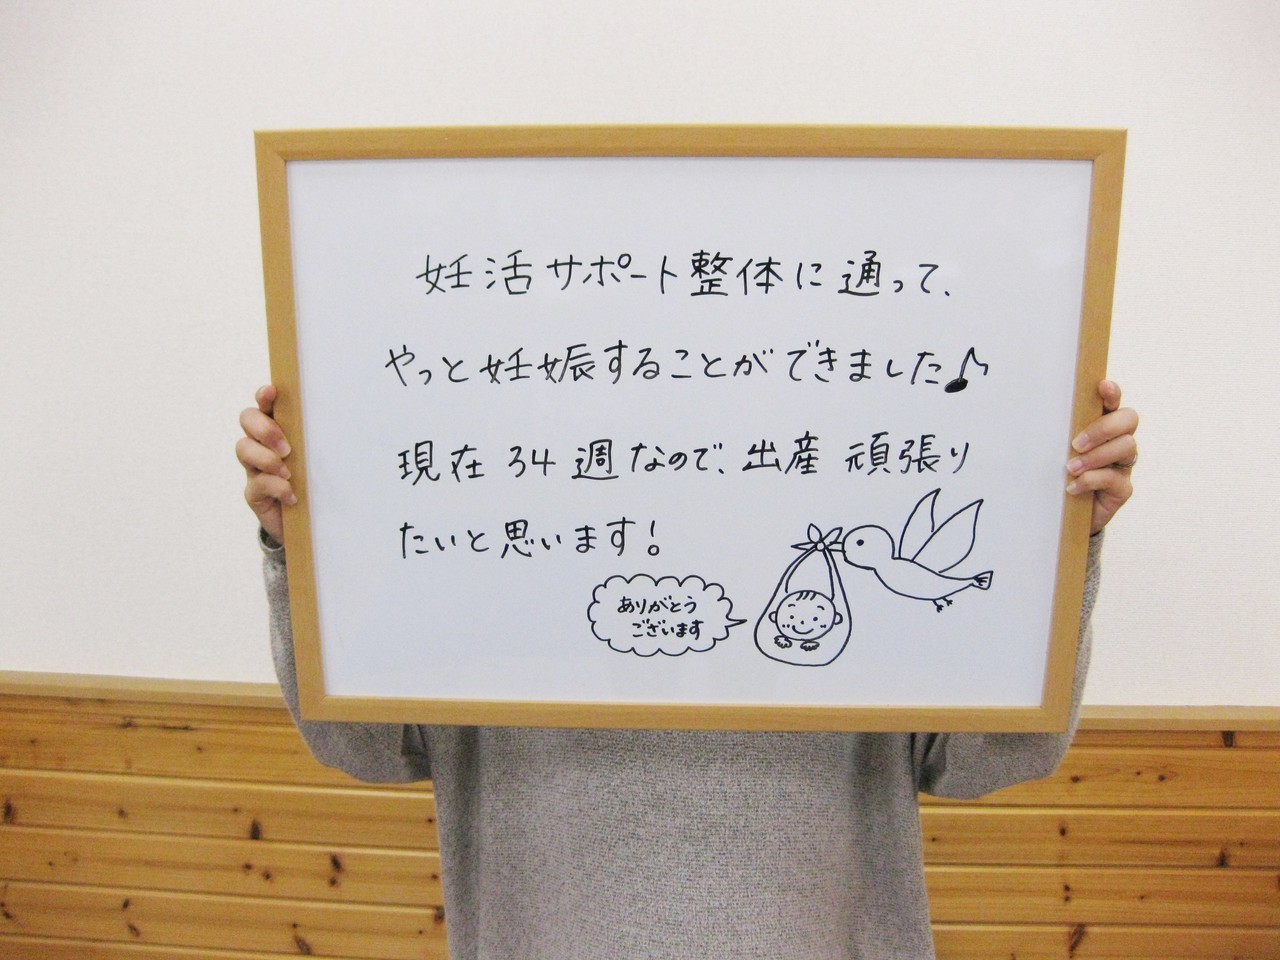 妊活サポート整体に通って、
やっと妊娠することができました♪
現在34週なので、出産 頑張り
たいと思います！
ありがとう
ございます